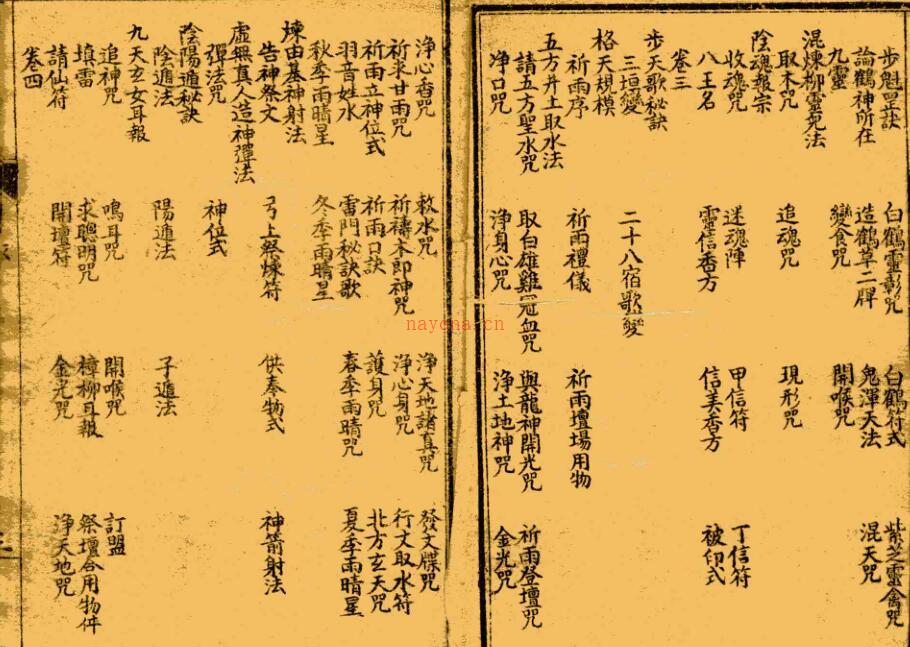 步魁罡訣 白鶴靈彰咒 白鶴符式 紫芝靈禽咒
論鶴神所在 造鶴草二牌 鬼渾天法 混天咒
九靈 變食咒 開喉咒
混煉柳靈児法
取木咒 追魂咒 現形咒
陰魂報宗
收魂咒 迷魂陣 甲信符 丁信符
八王名 靈信香方 信美香方 被印式
卷三
步天歌秘訣
三垣變 二十八宿歌變
格天規模
祈雨序 祈雨禮儀 祈雨壇場用物
五方井土取水法
請五方聖水咒 取白雄雞冠血咒 與龍神開光咒 祈雨登壇咒
淨口咒 淨身心咒 淨土地神咒 金光咒
淨心香咒 敕水咒 淨天地諸真咒 發文牒咒
祈求甘雨咒 祈禱木郎神咒 淨心身咒 行文取水符
祈雨立神位式 祈雨口訣 護身咒 北方玄天咒
羽音姓水 雷門秘訣歌 春季雨晴咒 夏季雨晴星
秋季雨晴星 冬季雨晴星
煉由基神射法
告神祭文 弓上祭煉符 供奉物式 神箭射法
虛無真人造神彈法
彈法咒 神位式
陰陽遁秘訣
陰遁法 陽遁法 子遁法
九天玄女耳報
追神咒 鳴耳咒 開喉咒 訂盟
填雷 求聰明咒 樟柳耳報 祭壇合用物件
請仙符 開壇符 金光咒 淨天地咒
卷四
nayona.cn